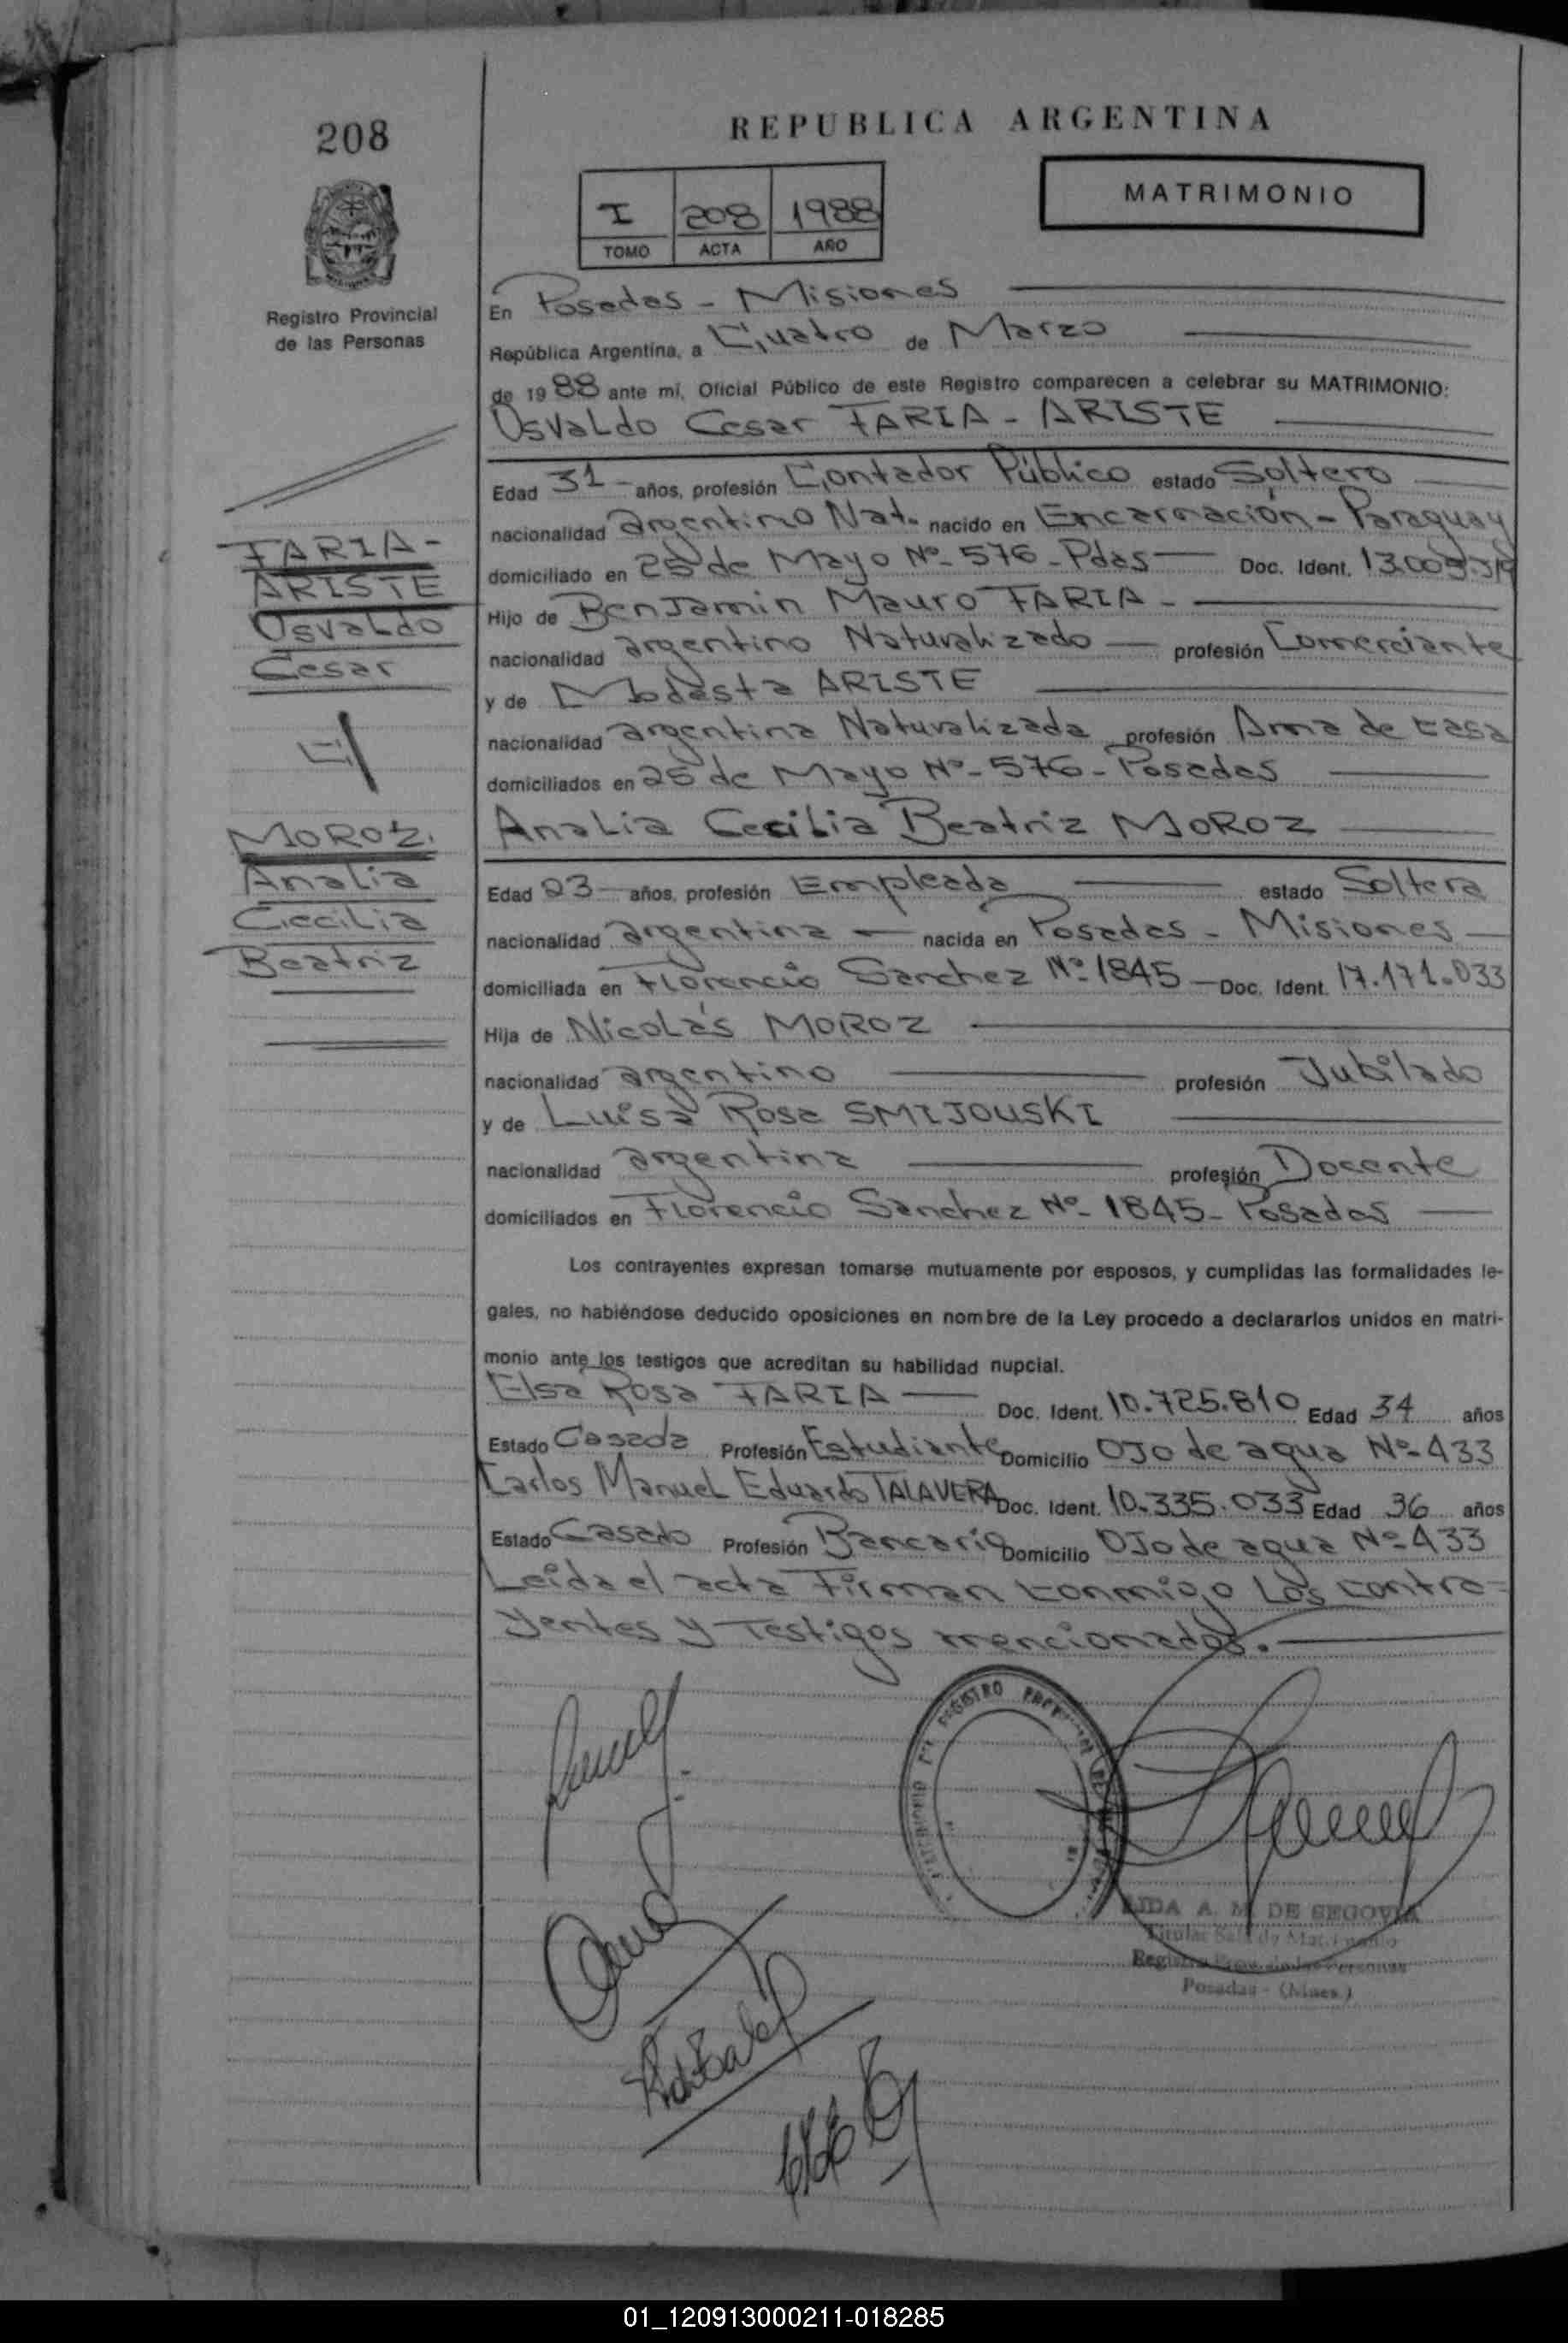 208
Registro Provincial
de las Personas
FARIA-
ARISTE
Osvaldo
Cesar
y
MOROZ.
Analia
Cecilia
Beatriz
REPUBLICA ARGENTINA
MATRIMONIO
I 208 1988
TOMO ACTA AÑO
En Posadas - Misiones
República Argentina, a Cuatro de Marzo
de 1988 ante mí, Oficial Público de este Registro comparecen a celebrar su MATRIMONIO:
Osvaldo Cesar FARIA - ARISTE
Edad 31 - años, profesión Contador Público estado Soltero
nacionalidad argentino Nat. nacido en Encarnación - Paraguay
domiciliado en 25 de Mayo Nº 576 - Pdas Doc. Ident.
Hijo de Benjamin Mauro FARIA -
nacionalidad argentino Naturalizado profesión Comerciante
y de Modesta ARISTE
nacionalidad argentina Naturalizada profesión Ama de casa
domiciliados en 25 de Mayo Nº - 576 - Posadas
Analia Cecilia Beatriz MOROZ
Edad 23 años, profesión Empleada estado Soltera
nacionalidad argentina - nacida en Posadas - Misiones
domiciliada en Florencio Sanchez Nº 1845 - Doc. Ident. 17.171.033
Hija de Nicolás MOROZ
nacionalidad argentino profesión Jubilado
y de Luisa Rosa SMIJOUSKI
nacionalidad argentina profesión Docente
domiciliados en Florencio Sanchez Nº - 1845 - Posadas
Los contrayentes expresan tomarse mutuamente por esposos, y cumplidas las formalidades le-
gales, no habiéndose deducido oposiciones en nombre de la Ley procedo a declararlos unidos en matri-
monio ante los testigos que acreditan su habilidad nupcial.
Elsa Rosa FARIA Doc. Ident. 10.725.810 Edad 34 años
Estado Casada Profesión Estudiante Domicilio Ojo de agua Nº 433
Carlos Manuel Eduardo TALAVERA Doc. Ident. 10.335.033 Edad 36 años
Estado Casado Profesión Bancario Domicilio Ojo de agua Nº 433
Leida el acta Firman conmigo Los contra-
yentes y Testigos mencionados.
AIDA A. M. DE SEGOVIA
Titular Sala de Matrimonio
Registro Prov. de las Personas
Posadas - (Mnes.)
01_120913000211-018285